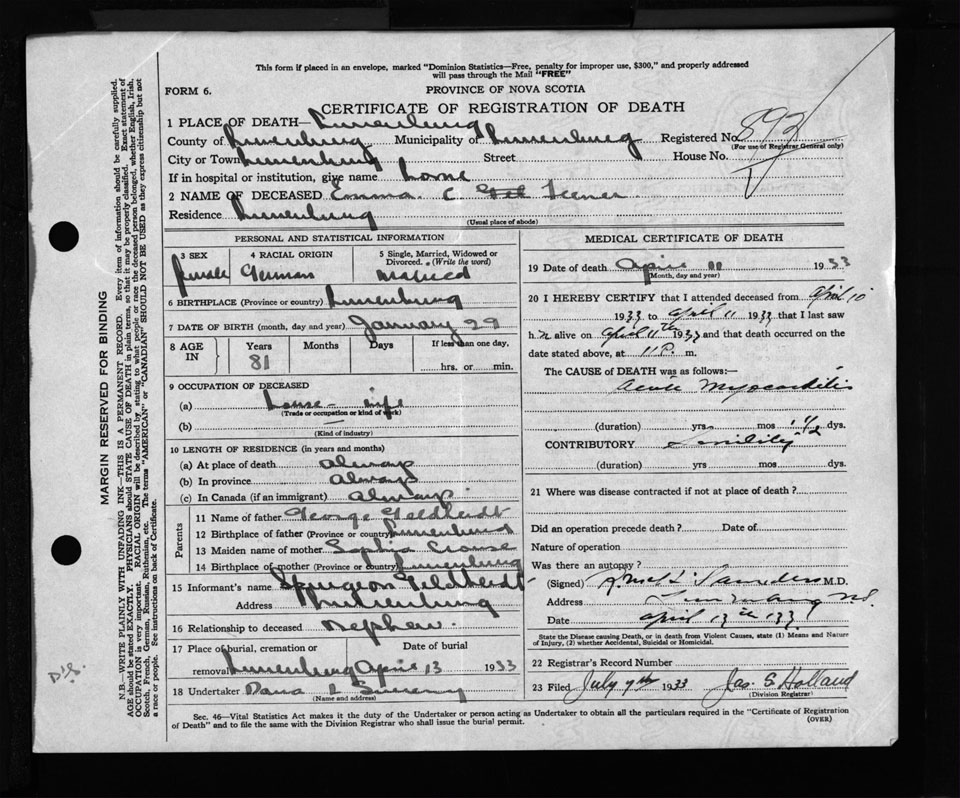 This form if placed in an envelope, marked "Dominion Statistics—Free, penalty for improper use, $300," and properly addressed
will pass through the Mail "FREE"
FORM 6.
PROVINCE OF NOVA SCOTIA
CERTIFICATE OF REGISTRATION OF DEATH
1 PLACE OF DEATH— Lunenburg
County of Lunenburg Municipality of Lunenburg Registered No. 892
(For use of Registrar General only)
City or Town Lunenburg Street House No.
If in hospital or institution, give name Home
2 NAME OF DECEASED Emma C
Residence Lunenburg
(Usual place of abode)
PERSONAL AND STATISTICAL INFORMATION
3 SEX 4 RACIAL ORIGIN 5 Single, Married, Widowed or
Divorced. (Write the word)
Female German Married
6 BIRTHPLACE (Province or country) Lunenburg
7 DATE OF BIRTH (month, day and year) January 29
8 AGE IN Years Months Days If less than one day,
81 hrs. or min.
9 OCCUPATION OF DECEASED
(a) House-wife
(Trade or occupation or kind of work)
(b) —
(Kind of industry)
10 LENGTH OF RESIDENCE (in years and months)
(a) At place of death always
(b) In province always
(c) In Canada (if an immigrant) always
Parents
11 Name of father George Geldherdt
12 Birthplace of father (Province or country) Lunenburg
13 Maiden name of mother Sophia Crouse
14 Birthplace of mother (Province or country) Lunenburg
15 Informant's name Spurgeon Geldherdt
Address Lunenburg
16 Relationship to deceased Nephew
17 Place of burial, cremation or Date of burial
removal Lunenburg April 13 1933
18 Undertaker Dana L Sweeny
(Name and address)
MEDICAL CERTIFICATE OF DEATH
19 Date of death April 11 1933
(Month, day and year)
20 I HEREBY CERTIFY that I attended deceased from April 10
1933 to April 11 1933 that I last saw
h er alive on April 11th 1933 and that death occurred on the
date stated above, at 11 P. m.
The CAUSE of DEATH was as follows:—
Acute Myocarditis
(duration) yrs mos 1 1/2 dys.
CONTRIBUTORY Senility
(duration) yrs mos dys.
21 Where was disease contracted if not at place of death?
Did an operation precede death? Date of
Nature of operation
Was there an autopsy?
(Signed) Saunders M.D.
Address Lunenburg NS.
Date April 13th 1933
State the Disease causing Death, or in death from Violent Causes, state (1) Means and Nature
of Injury, (2) whether Accidental, Suicidal or Homicidal.
22 Registrar's Record Number
23 Filed July 7th 1933 Jas. S Holland
(Division Registrar)
Sec. 46—Vital Statistics Act makes it the duty of the Undertaker or person acting as Undertaker to obtain all the particulars required in the "Certificate of Registration
of Death" and to file the same with the Division Registrar who shall issue the burial permit. (OVER)
MARGIN RESERVED FOR BINDING
N.B.—WRITE PLAINLY WITH UNFADING INK—THIS IS A PERMANENT RECORD. Every item of information should be carefully supplied.
AGE should be stated EXACTLY. PHYSICIANS should STATE CAUSE OF DEATH in plain terms, so that it may be properly classified. Exact statement of
OCCUPATION is very important. RACIAL ORIGIN will be described by stating to what people or race the deceased person belonged, whether English, Irish,
Scotch, French, German, Russian, Ruthenian, etc. The terms "AMERICAN" or "CANADIAN" SHOULD NOT BE USED as they express citizenship but not
a race or people. See instructions on back of Certificate.